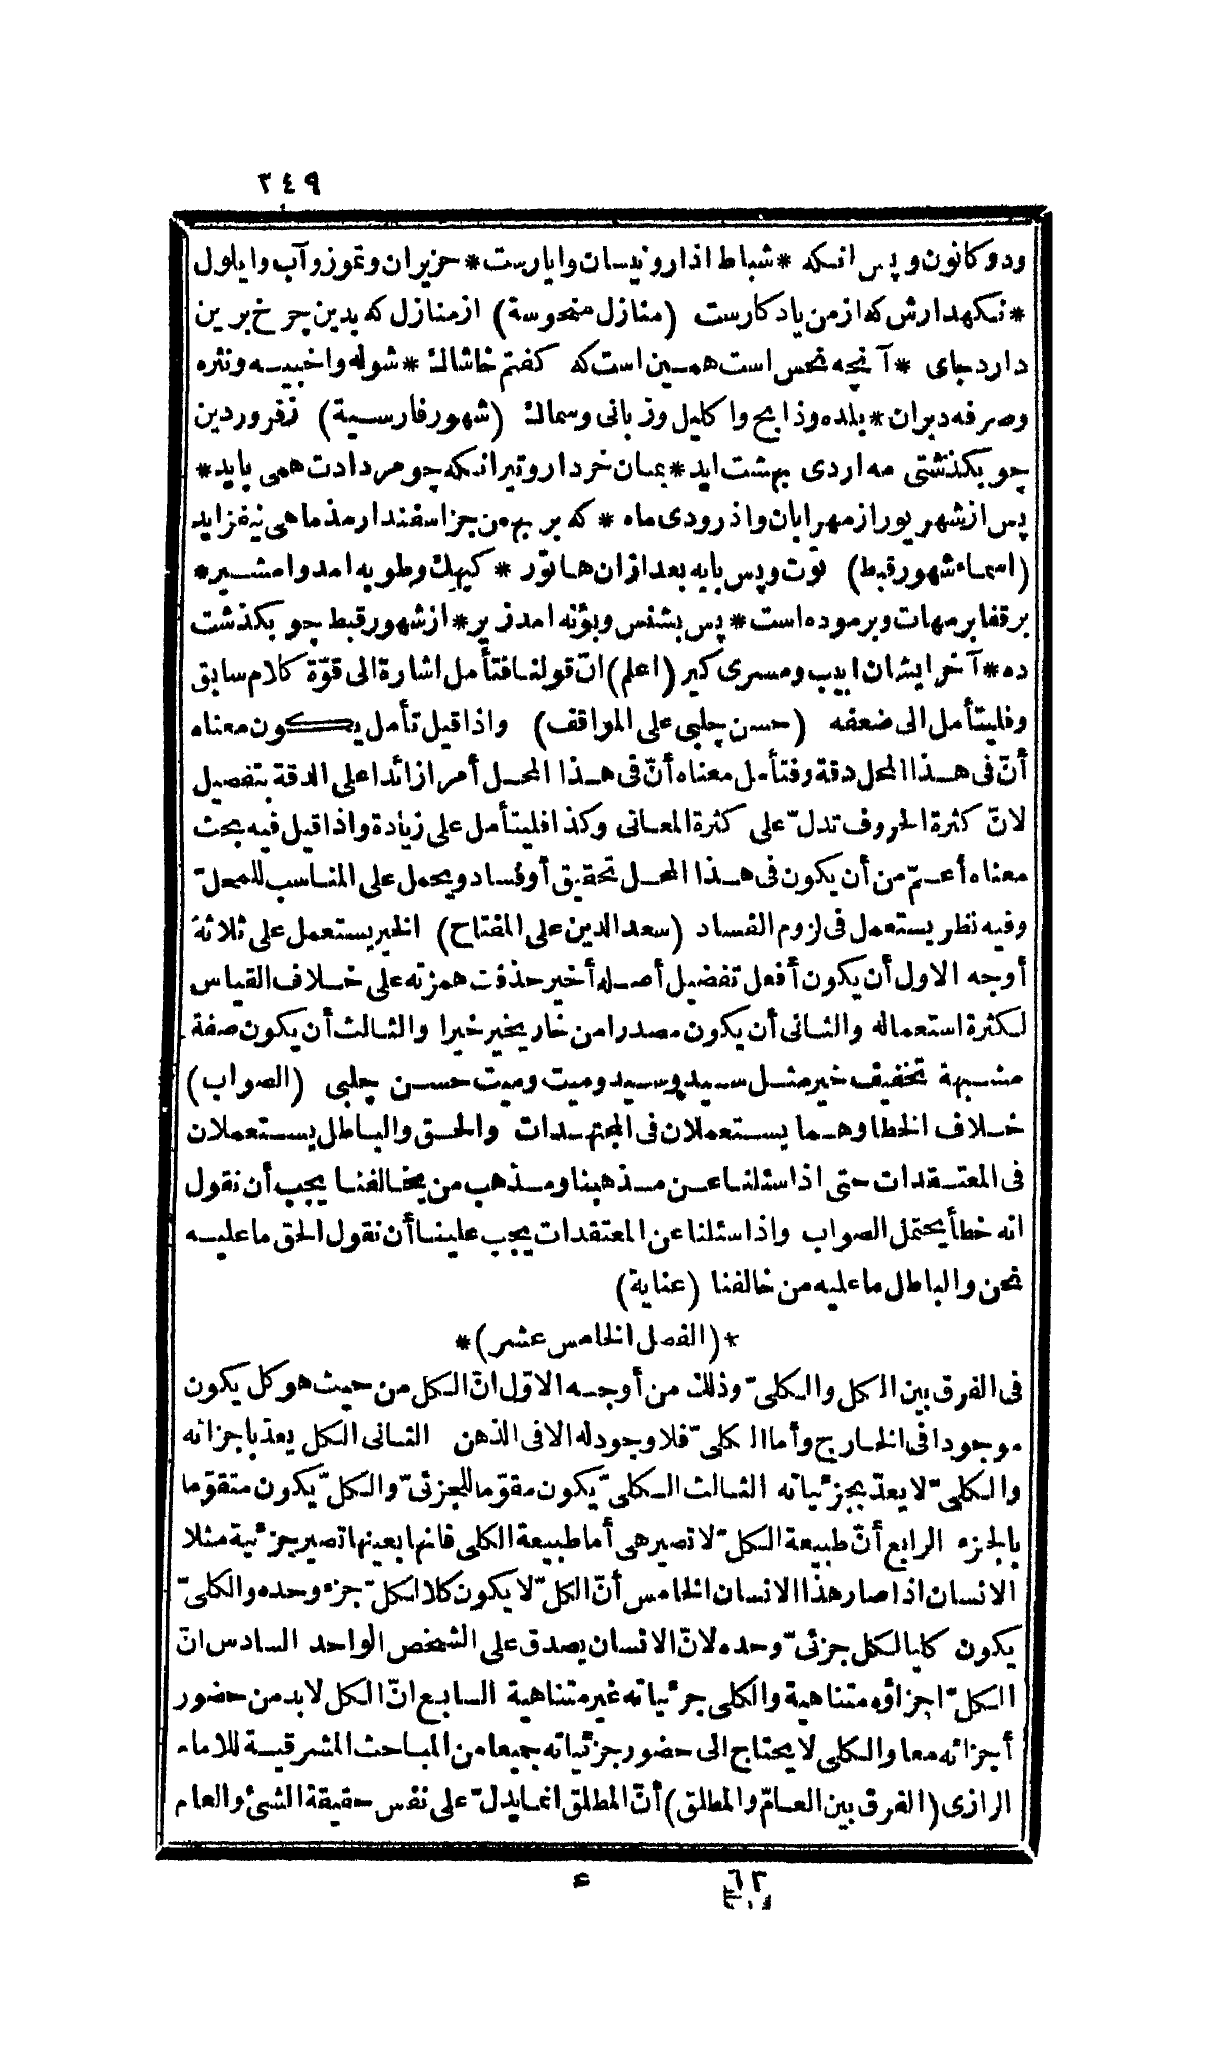 ٢٤٩
ودو كانون و پس انكه * شباط اذار و نيسان و ايارست * حزيران و تموز و آب و ايلول
* نكهدارش كه از من يادكارست (منازل منحوسة) از منازل كه بدين چرخ برين
دارد جاى * آنچه نحس است همين است كه كفتم خاشاك * شوله و اخبيه و نثره
وصرفه دبران * بلده وذابح واكليل وزبانى وسماك (شهور فارسية) ز فروردين
چو بكذشتى مه اردى بهشت ايد * بمان خرداد و تير انكه چو مردادت همى بايد *
پس از شهريور از مهر ابان واذر ودى ماه * كه بر بهمن جز اسفندارمذ ماهى نيفزايد
(اسماء شهور قبط) توت و پس بابه بعد ازان هاتور * كيهك وطوبه امد وامشير *
برقفا برمهات وبرموده است * پس بشنس وبؤنه امد زير * از شهور قبط چو بكذشت
ده * آخر ايشان ابيب ومسرى كير (اعلم) انّ قولنا فتأمل اشارة الى قوّة كلام سابق
وفليتأمل الى ضعفه (حسن چلبى على المواقف) واذا قيل تأمل يكون معناه
أنّ فى هذا المحل دقة وفتأمل معناه أنّ فى هذا المحل أمرا زائدا على الدقة بتفصيل
لانّ كثرة الحروف تدلّ على كثرة المعانى وكذا فليتأمل على زيادة واذا قيل فيه بحث
معناه أعمّ من أن يكون فى هذا المحل تحقيق أو فساد ويحمل على المناسب للمحلّ
وفيه نظر يستعمل فى لزوم الفساد (سعد الدين على المفتاح) الخير يستعمل على ثلاثة
أوجه الاول أن يكون أفعل تفضيل أصله أخير حذفت همزته على خلاف القياس
لكثرة استعماله والثانى أن يكون مصدرا من خار يخير خيرا والثالث أن يكون صفة
مشبهة تخفيف خير مثل سيد وسيد وميت وميت حسن چلبى (الصواب)
خلاف الخطا وهما يستعملان فى المجتهدات والحق والباطل يستعملان
فى المعتقدات حتى اذا سئلنا عن مذهبنا ومذهب من يخالفنا يجب أن نقول
انه خطأ يحتمل الصواب واذا سئلنا عن المعتقدات يجب علينا أن نقول الحق ما عليه
نحن والباطل ما عليه من خالفنا (عناية)
*(الفصل الخامس عشر)*
فى الفرق بين الكل والكلىّ وذلك من أوجه الاوّل انّ الكل من حيث هو كل يكون
موجودا فى الخارج وأما الكلىّ فلا وجود له الا فى الذهن الثانى الكل يعدّ باجزائه
والكلىّ لا يعدّ بجزئياته الثالث الكلىّ يكون مقوّما للجزئىّ والكلّ يكون متقوّما
بالجزء الرابع أنّ طبيعة الكلّ لا تصير هى أما طبيعة الكلى فانها بعينها تصير جزئية مثلا
الانسان اذا صار هذا الانسان الخامس أنّ الكلّ لا يكون كلا لكلّ جزء وحده والكلىّ
يكون كليا لكل جزئىّ وحده لانّ الانسان يصدق على الشخص الواحد السادس انّ
الكلّ اجزاؤه متناهية والكلى جزئياته غير متناهية السابع انّ الكل لا بد من حضور
أجزائه معا والكلى لا يحتاج الى حضور جزئياته جميعا من المباحث المشرقية للامام
الرازى (الفرق بين العامّ والمطلق) أنّ المطلق انما يدلّ على نفس حقيقة الشئ والعام
٦٢ ء